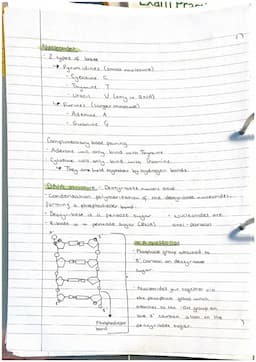 Exam Prac
Nucleotides
- 2 types of base
↳ Pyrimidines (small molecule)
- Cytosine C
- Thymine T
- Uracil U (only in RNA)
↳ Purines (larger molecule)
- Adenine A
- Guanine G
Complementary base pairing
- Adenine will only bind with Thymine
- Cytosine will only bind with Guanine
↳ They are held together by hydrogen bonds.
DNA structure - Deoxyribose nucleic acid
- Condensation polymerisation of the deoxyribose nucleotides,
forming a phosphodiester bond.
- Deoxyribose is a pentose sugar
- Ribose is a pentose sugar (RNA)
- nucleotides are
anti-
In a nucleotide
- Phosphate group attached to
5' carbon on deoxyribose
sugar
- Nucleotides join together via
the phosphate group which
attaches to the -OH group on
the 3' carbon atom on the
deoxyribose sugar.
Phosphodiester
bond